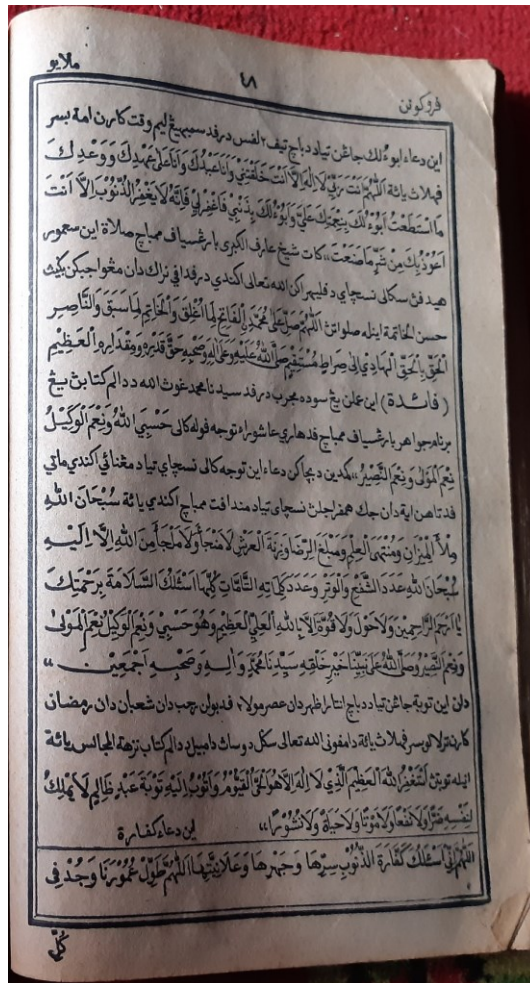 فروكونن ٤٨ ملايو
اين دعاء ابوءُ لك جاڠن تياد دباچ تيف٢ لفس درفد سمبهيڠ ليم وقت كارن امة بسر
فهلاث يائة اَللّٰهُمَّ اَنْتَ رَبِّيْ لَا اِلٰهَ اِلَّا اَنْتَ خَلَقْتَنِيْ وَاَنَا عَبْدُكَ وَاَنَا عَلٰى عَهْدِكَ وَوَعْدِكَ
مَا اسْتَطَعْتُ اَبُوْءُ لَكَ بِنِعْمَتِكَ عَلَيَّ وَاَبُوْءُ لَكَ بِذَنْبِيْ فَاغْفِرْلِيْ فَاِنَّهُ لَا يَغْفِرُ الذُّنُوْبَ اِلَّا اَنْتَ
اَعُوْذُ بِكَ مِنْ شَرِّ مَا صَنَعْتُ،، كات شيخ عارف الكبرى بارڠسياف ممباچ صلاة اين سعمور
هيدفن سكالي نسچاي دفليهراكن الله تعالى اكندي درفد افي نراك دان مڠواجبكن بڬيث
حسن الخاتمة ايله صلواتن اَللّٰهُمَّ صَلِّ عَلٰى مُحَمَّدٍ الْفَاتِحِ لِمَا اُغْلِقَ وَالْخَاتِمِ لِمَا سَبَقَ وَالنَّاصِرِ
الْحَقِّ بِالْحَقِّ الْهَادِيْ اِلٰى صِرَاطٍ مُسْتَقِيْمٍ صَلَّى اللهُ عَلَيْهِ وَعَلٰى اٰلِهِ وَصَحْبِهِ حَقَّ قَدْرِهِ وَمِقْدَارِهِ الْعَظِيْمِ
( فائدة ) اين عملن يڠ سوده مجرب درفد سيدنا محمد غوث الله ددالم كتابن يڠ
برنام جواهر بارڠسياف ممباچ فدهاري عاشوراء توجه فوله كالي حَسْبِيَ اللهُ وَنِعْمَ الْوَكِيْلُ
نِعْمَ الْمَوْلٰى وَنِعْمَ النَّصِيْرُ،، كمدين دبچاكن دعاء اين توجه كالي نسچاي تياد مڠنائي اكندي ماتي
فد تاهن ايه دان جك همفر اجلن نسچاي تياد مندافت ممباچ اكندي يائة سُبْحَانَ اللهِ
مِلْأَ الْمِيْزَانِ وَمُنْتَهَى الْعِلْمِ وَمَبْلَغَ الرِّضَا وَزِنَةَ الْعَرْشِ لَا مَنْجَأَ وَلَا مَلْجَأَ مِنَ اللهِ اِلَّا اِلَيْهِ
سُبْحَانَ اللهِ عَدَدَ الشَّفْعِ وَالْوَتْرِ وَعَدَدَ كَلِمَاتِهِ التَّامَّاتِ كُلِّهَا اَسْئَلُكَ السَّلَامَةَ بِرَحْمَتِكَ
يَا اَرْحَمَ الرَّاحِمِيْنَ وَلَا حَوْلَ وَلَا قُوَّةَ اِلَّا بِاللهِ الْعَلِيِّ الْعَظِيْمِ وَهُوَ حَسْبِيْ وَنِعْمَ الْوَكِيْلُ نِعْمَ الْمَوْلٰى
وَنِعْمَ النَّصِيْرُ وَصَلَّى اللهُ عَلٰى نَبِيِّنَا خَيْرِ خَلْقِهِ سَيِّدِنَا مُحَمَّدٍ وَاٰلِهِ وَصَحْبِهِ اَجْمَعِيْنَ،،
دان اين توبة جاڠن تياد دباچ انتارا ظهر دان عصر مولا٢ فد بولن رجب دان شعبان دان رمضان
كارن ترلالو بسر فهلاث يائة دامفوني الله تعالى سڬل دوسا٢ث دامبيل ددالم كتاب نزهة المجالس يائة
ايله توبتن اَسْتَغْفِرُ اللهَ الْعَظِيْمَ الَّذِيْ لَا اِلٰهَ اِلَّا هُوَ الْحَيُّ الْقَيُّوْمُ وَاَتُوْبُ اِلَيْهِ تَوْبَةَ عَبْدٍ ظَالِمٍ لَا يَمْلِكُ
لِنَفْسِهِ ضَرًّا وَلَا نَفْعًا وَلَا مَوْتًا وَلَا حَيٰوةً وَلَا نُشُوْرًا،، اين دعاء كفارة
اَللّٰهُمَّ اِنِّيْ اَسْئَلُكَ كَفَّارَةَ الذُّنُوْبِ سِرِّهَا وَجَهْرِهَا وَعَلَانِيَتِهَا اَللّٰهُمَّ طَوِّلْ عُمُوْرَنَا وَجُدْ فِيْ
كُلِّ